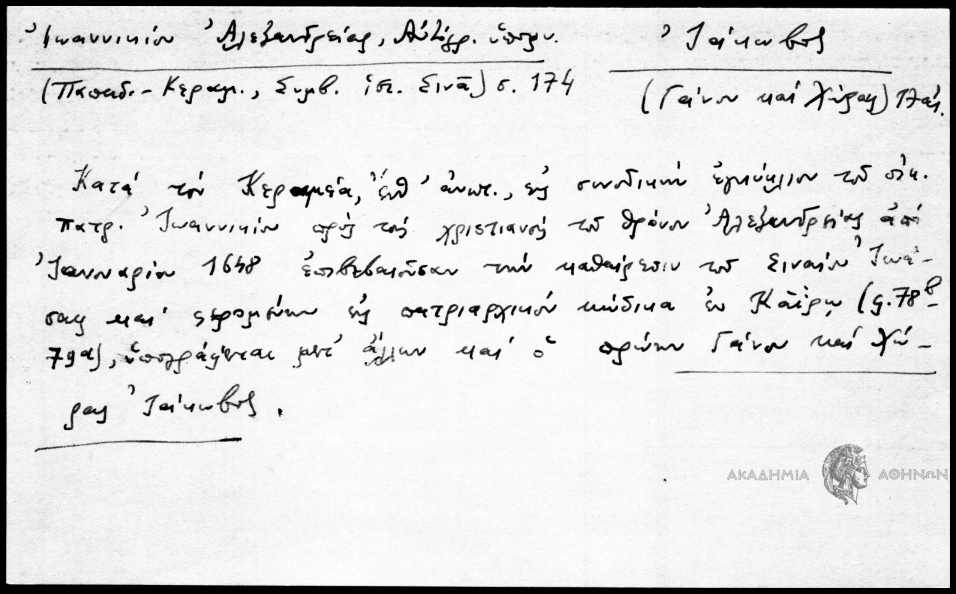 Ἰωαννικίου Ἀλεξανδρείας, Ἀντίγρ. ὑπομν.
Ἰάκωβος
(Παπαδ.-Κεραμ., Συμβ. ἱστ. Σινᾶ) σ. 174
(Γάνου καὶ Χώρας) 17 αἰ.
Κατὰ τὸν Κεραμέα, ἔνθ' ἀνωτ., εἰς συνοδικὴν ἐγκύκλιον τοῦ οἰκ.
πατρ. Ἰωαννικίου πρὸς τοὺς χριστιανοὺς τοῦ θρόνου Ἀλεξανδρείας ἀπὸ
Ἰανουαρίου 1648 ἐπιβεβαιοῦσαν τὴν καθαίρεσιν τοῦ Σιναίου Ἰωά-
σαφ καὶ εὑρισκομένην εἰς πατριαρχικὸν κώδικα ἐν Καΐρῳ (φ. 78β-
79α), ὑπογράφεται μετ' ἄλλων καὶ ὁ πρώην Γάνου καὶ Χώ-
ρας Ἰάκωβος.
ΑΚΑΔΗΜΙΑ ΑΘΗΝΩΝ